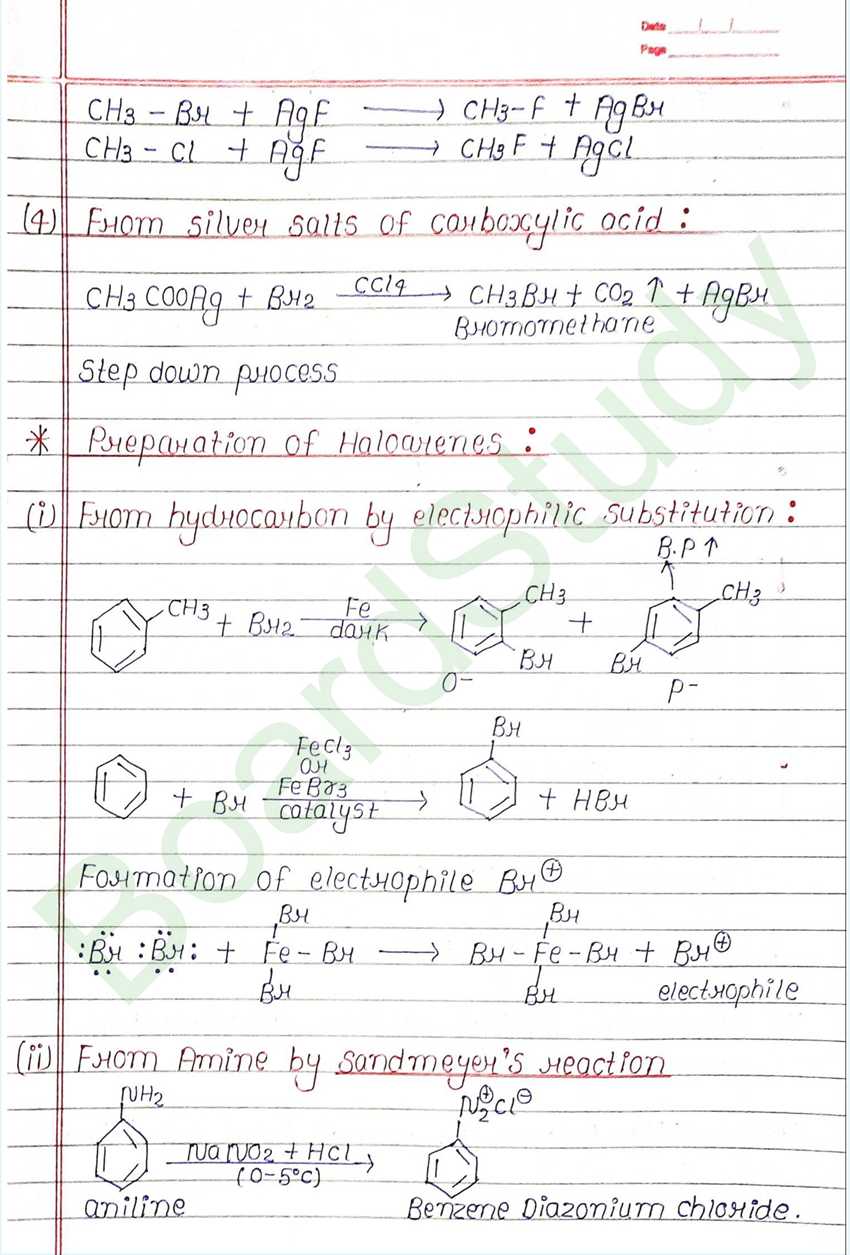 Date / /
Page
CH3 – Br + AgF ⟶ CH3–F + AgBr
CH3 – Cl + AgF ⟶ CH3F + AgCl
(4) From silver salts of carboxylic acid :
CH3COOAg + Br2 —CCl4⟶ CH3Br + CO2 ↑ + AgBr
Bromomethane
Step down process
* Preparation of Haloarenes :
(i) From hydrocarbon by electrophilic substitution :
B.P ↑
CH3 + Br2 —Fe⟶ CH3 + CH3
dark
Br Br
O– p–
Br
FeCl3
or
FeBr3
+ Br ⟶ + HBr
catalyst
Formation of electrophile Br⊕
Br Br
:Br :Br: + Fe – Br ⟶ Br – Fe – Br + Br⊕
Br Br electrophile
(ii) From Amine by Sandmeyer's reaction
NH2 N2⊕Cl⊖
NaNO2 + HCl ⟶
(0–5°C)
aniline Benzene Diazonium chloride.
BoardStudy